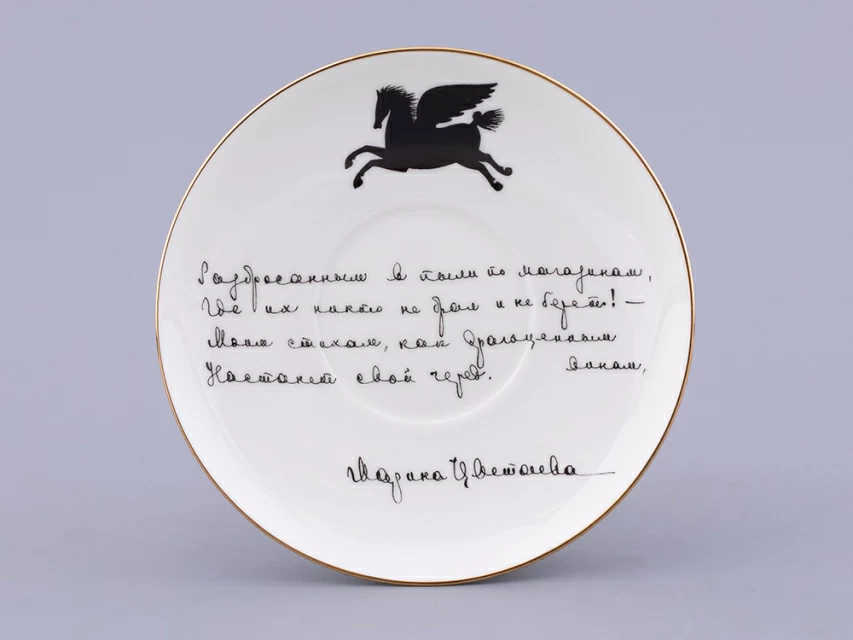 Разбросанным в пыли по магазинам,
Где их никто не брал и не берет! —
Моим стихам, как драгоценным
винам,
Настанет свой черед.
Марина Цветаева